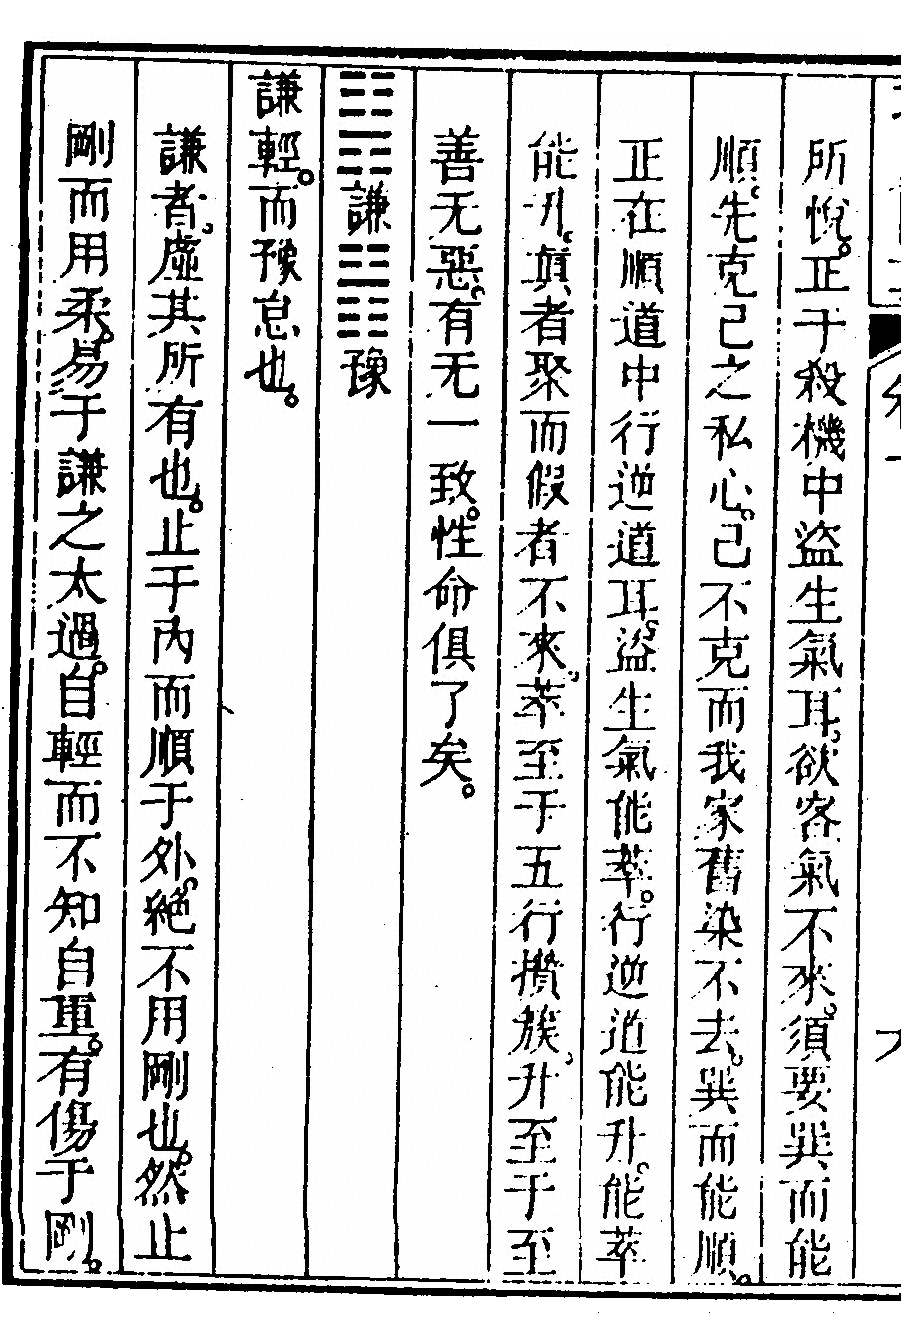 所悅。正于殺機中盜生氣耳。欲客氣不來。須要巽而能
順。先克己之私心。己不克而我家舊染不去。巽而能順。
正在順道中行逆道耳。盜生氣能萃。行逆道能升。能萃
能升。真者聚而假者不來。萃至于五行攢簇。升至于至
善无惡。有无一致。性命俱了矣。
䷎謙䷏豫
謙輕。而豫怠也。
謙者。虛其所有也。止于內而順于外。絕不用剛也。然止
剛而用柔。易于謙之太過。自輕而不知自重。有傷于剛。